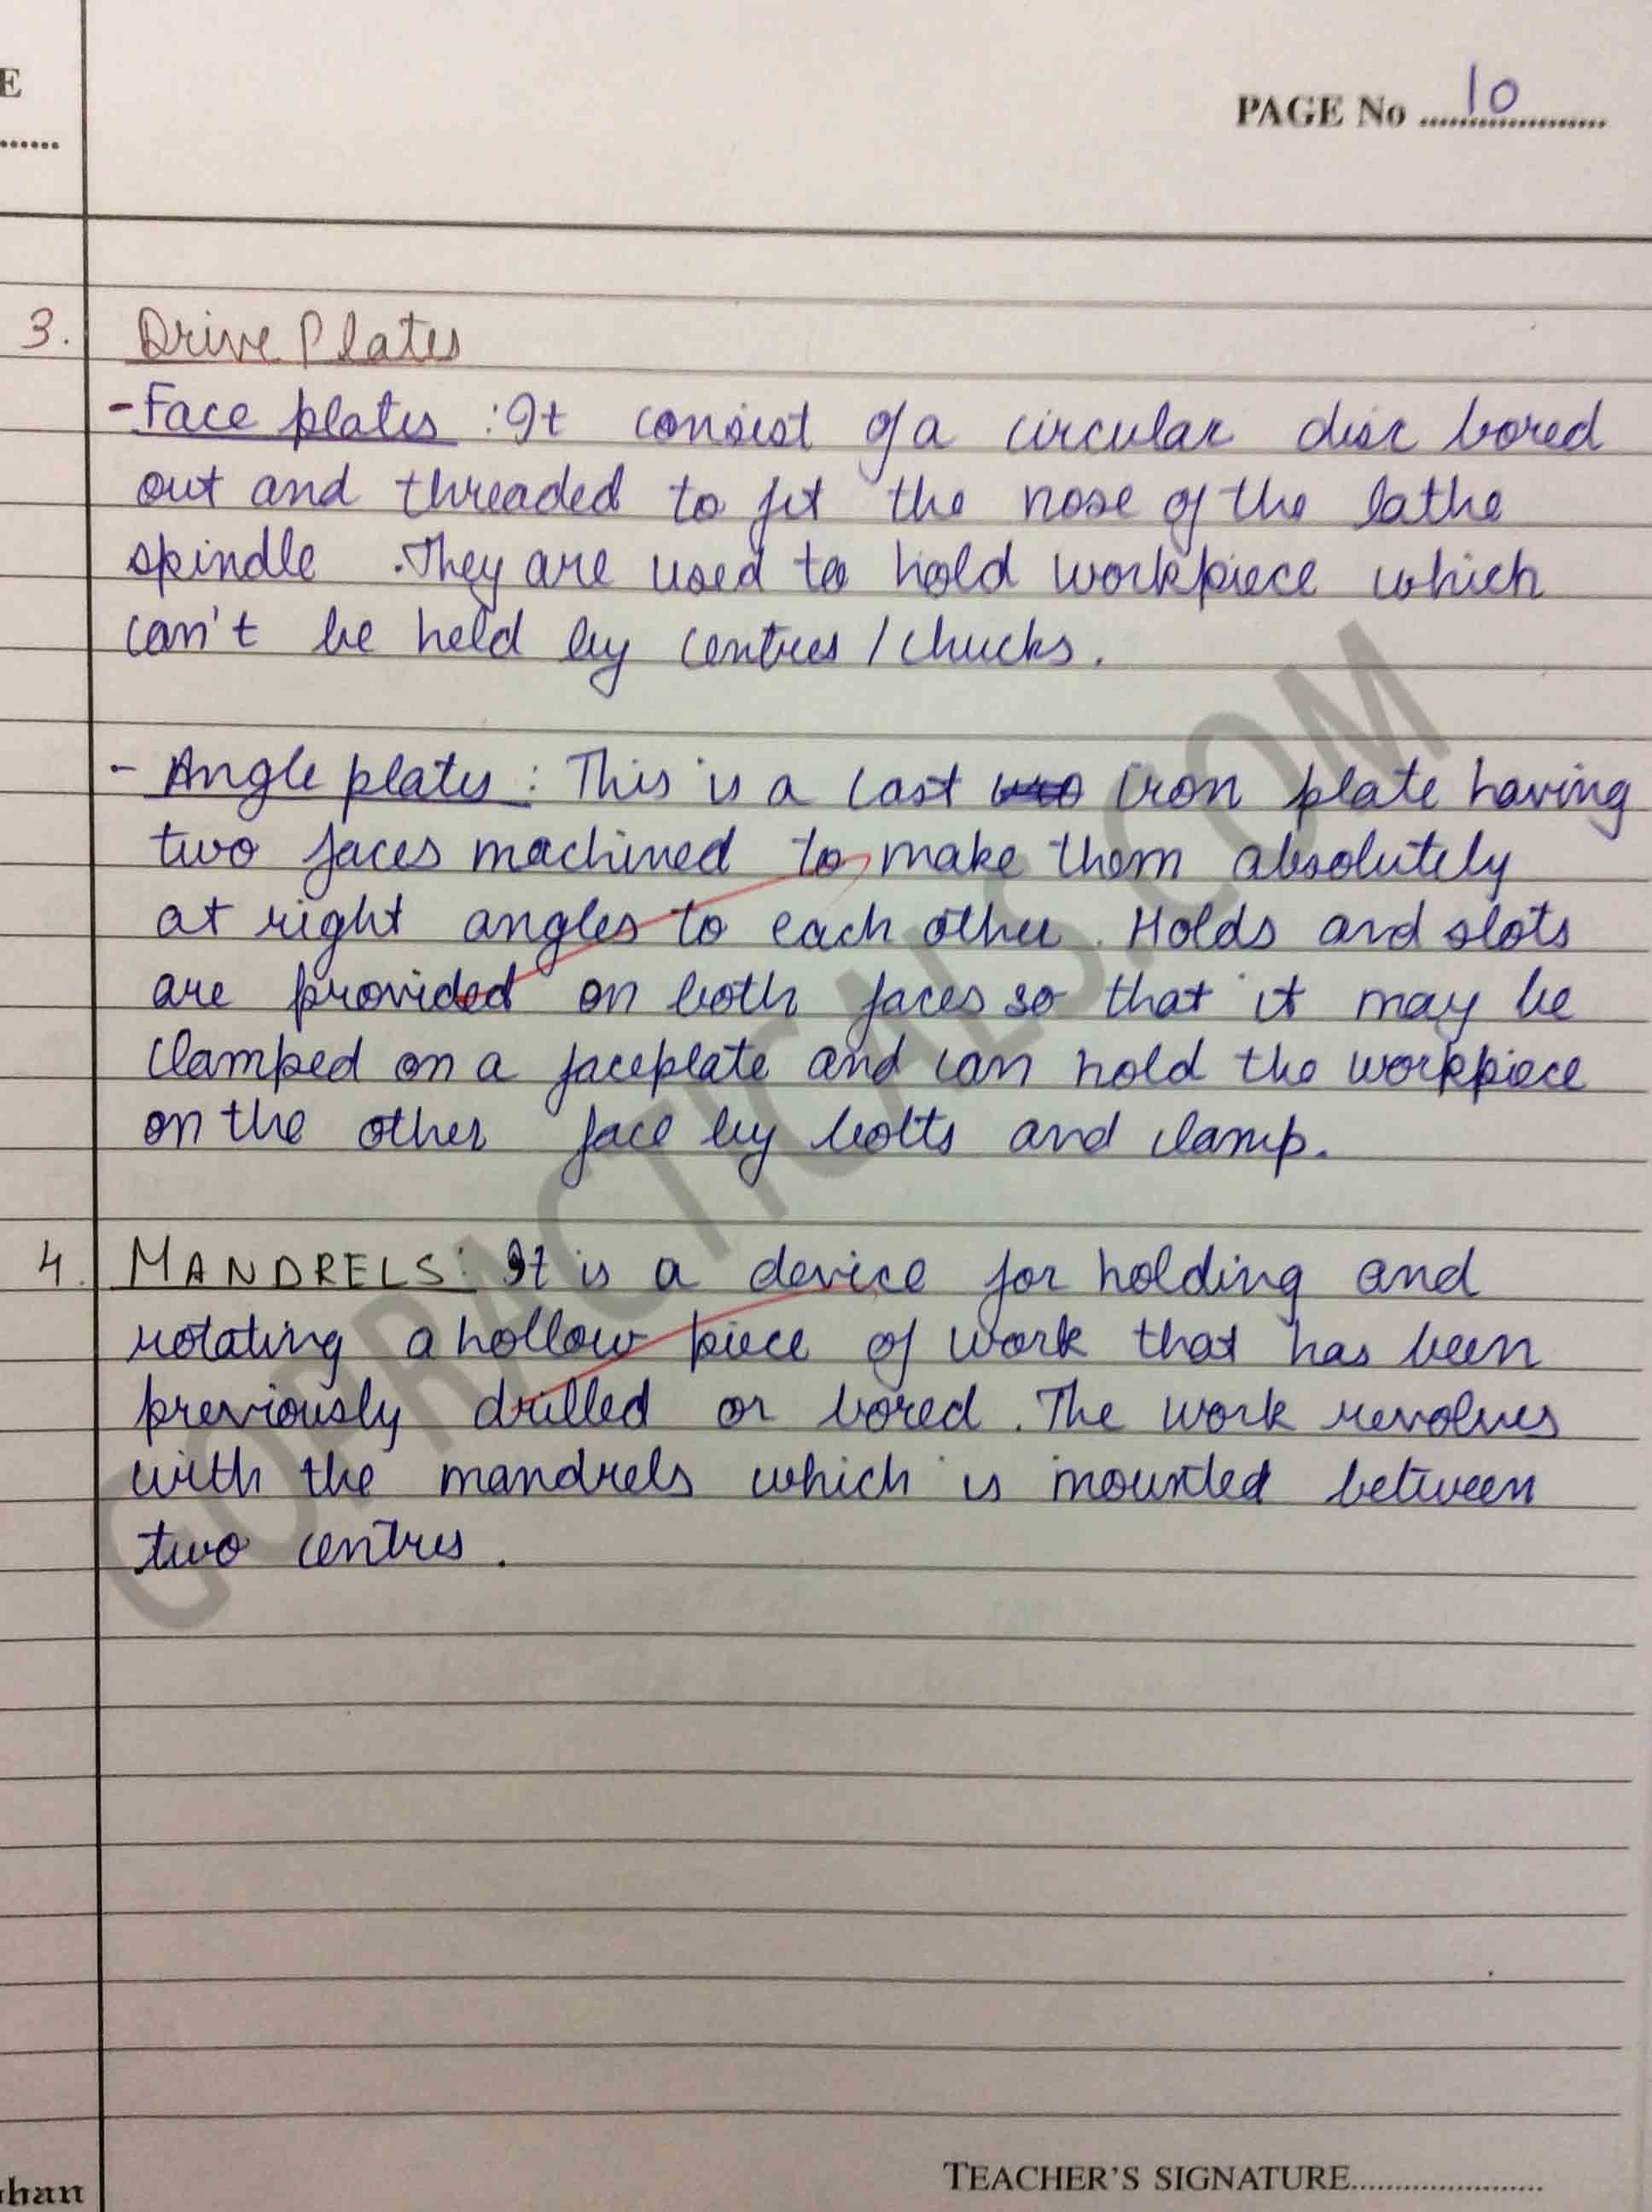 E
PAGE No ....10....
......
3. Drive Plates
- Face plates : It consist of a circular disc bored
out and threaded to fit the nose of the lathe
spindle . They are used to hold workpiece which
can't be held by centres / chucks .
- Angle plates : This is a cast iron plate having
two faces machined to make them absolutely
at right angles to each other . Holds and slots
are provided on both faces so that it may be
clamped on a faceplate and can hold the workpiece
on the other face by bolts and clamp .
4. MANDRELS : It is a device for holding and
rotating a hollow piece of work that has been
previously drilled or bored . The work revolves
with the mandrels which is mounted between
two centres .
GOPRACTICALS.COM
TEACHER'S SIGNATURE........................
han